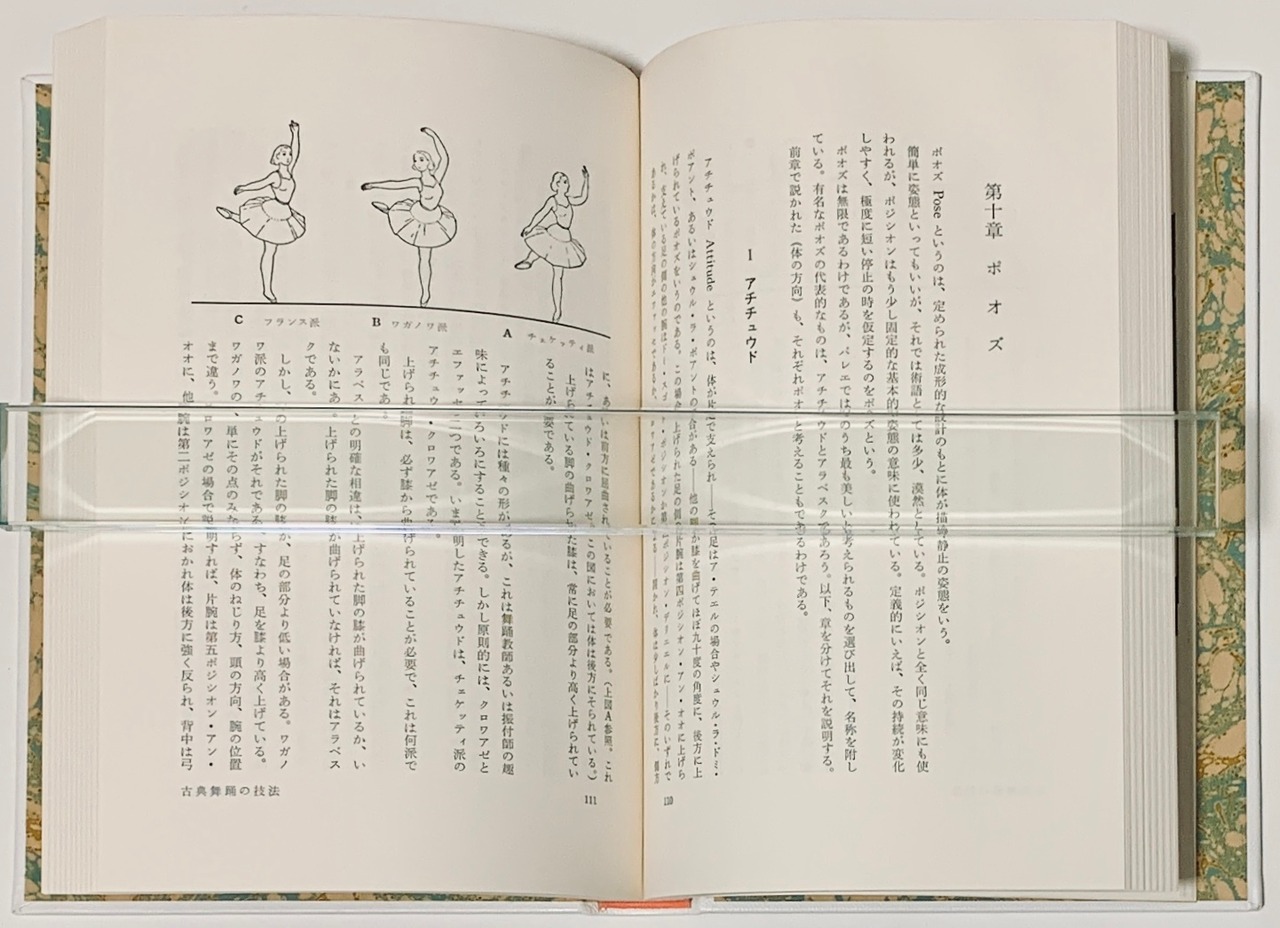 第十章 ポオズ
ポオズ Pose というのは、定められた成形的な設計のもとに体が描く静止の姿態をいう。
簡単に姿態といってもいいが、それでは術語としては多少、漠然としている。ポジシオンと全く同じ意味にも使
われるが、ポジシオンはもう少し固定的な基本的な姿態の意味に使われている。定義的にいえば、その持続が変化
しやすく、極度に短い停止の時を仮定するのをポオズという。
ポオズは無限であるわけであるが、バレエではそのうち最も美しいと考えられるものを選び出して、名称を附し
ている。有名なポオズの代表的なものは、アチチュウドとアラベスクであろう。以下、章を分けてそれを説明する。
前章で説かれた(体の方向)も、それぞれポオズと考えることもできるわけである。
I アチチュウド
アチチュウド Attitude というのは、体が片足で支えられ――その足はア・テエルの場合やシュウル・ラ・ドミ・
ポアント、あるいはシュウル・ラ・ポアントの場合がある――他の脚が膝を曲げてほぼ九十度の角度に、後方に上
げられているポオズをいうのである。この場合、上げられた足の側の片腕は第四ポジシオン・アン・オオに上げら
れ、支えている足の側の他の腕はドミ・スゴンド・ポジシオンか第 ポジシオン・デリエエルに――そのいずれで
あるかは、体の方向がエファッセであるか、クロワアゼであるかによる――開かれ、体は少しばかり後方に、側方
110
に、あるいは前方に屈曲されていることが必要である。(上図A参照。これ
はアチチュウド・クロワアゼ。この図においては体は後方にそられている。)
上げられている脚の曲げられた膝は、常に足の部分より高く上げられてい
ることが必要である。
アチチュウドには種々の形があるが、これは舞踊教師あるいは振付師の趣
味によっていろいろにすることができる。しかし原則的には、クロワアゼと
エファッセの二つである。いま説明したアチチュウドは、チェケッティ派の
アチチュウド・クロワアゼである。
上げられた脚は、必ず膝から曲げられていることが必要で、これは何派で
も同じである。
アラベスクとの明確な相違は、上げられた脚の膝が曲げられているか、い
ないかにある。上げられた脚の膝が曲げられていなければ、それはアラベス
クである。
しかし、この上げられた脚の膝が、足の部分より低い場合がある。ワガノ
ワ派のアチチュウドがそれである。すなわち、足を膝より高く上げている。
ワガノワのは、単にその点のみならず、体のねじり方、頭の方向、腕の位置
まで違う。クロワアゼの場合で説明すれば、片腕は第五ポジシオン・アン・
オオに、他の腕は第二ポジシオンにおかれ体は後方に強く反られ、背中は弓
A チェケッティ派
B ワガノワ派
C フランス派
古典舞踊の技法
111